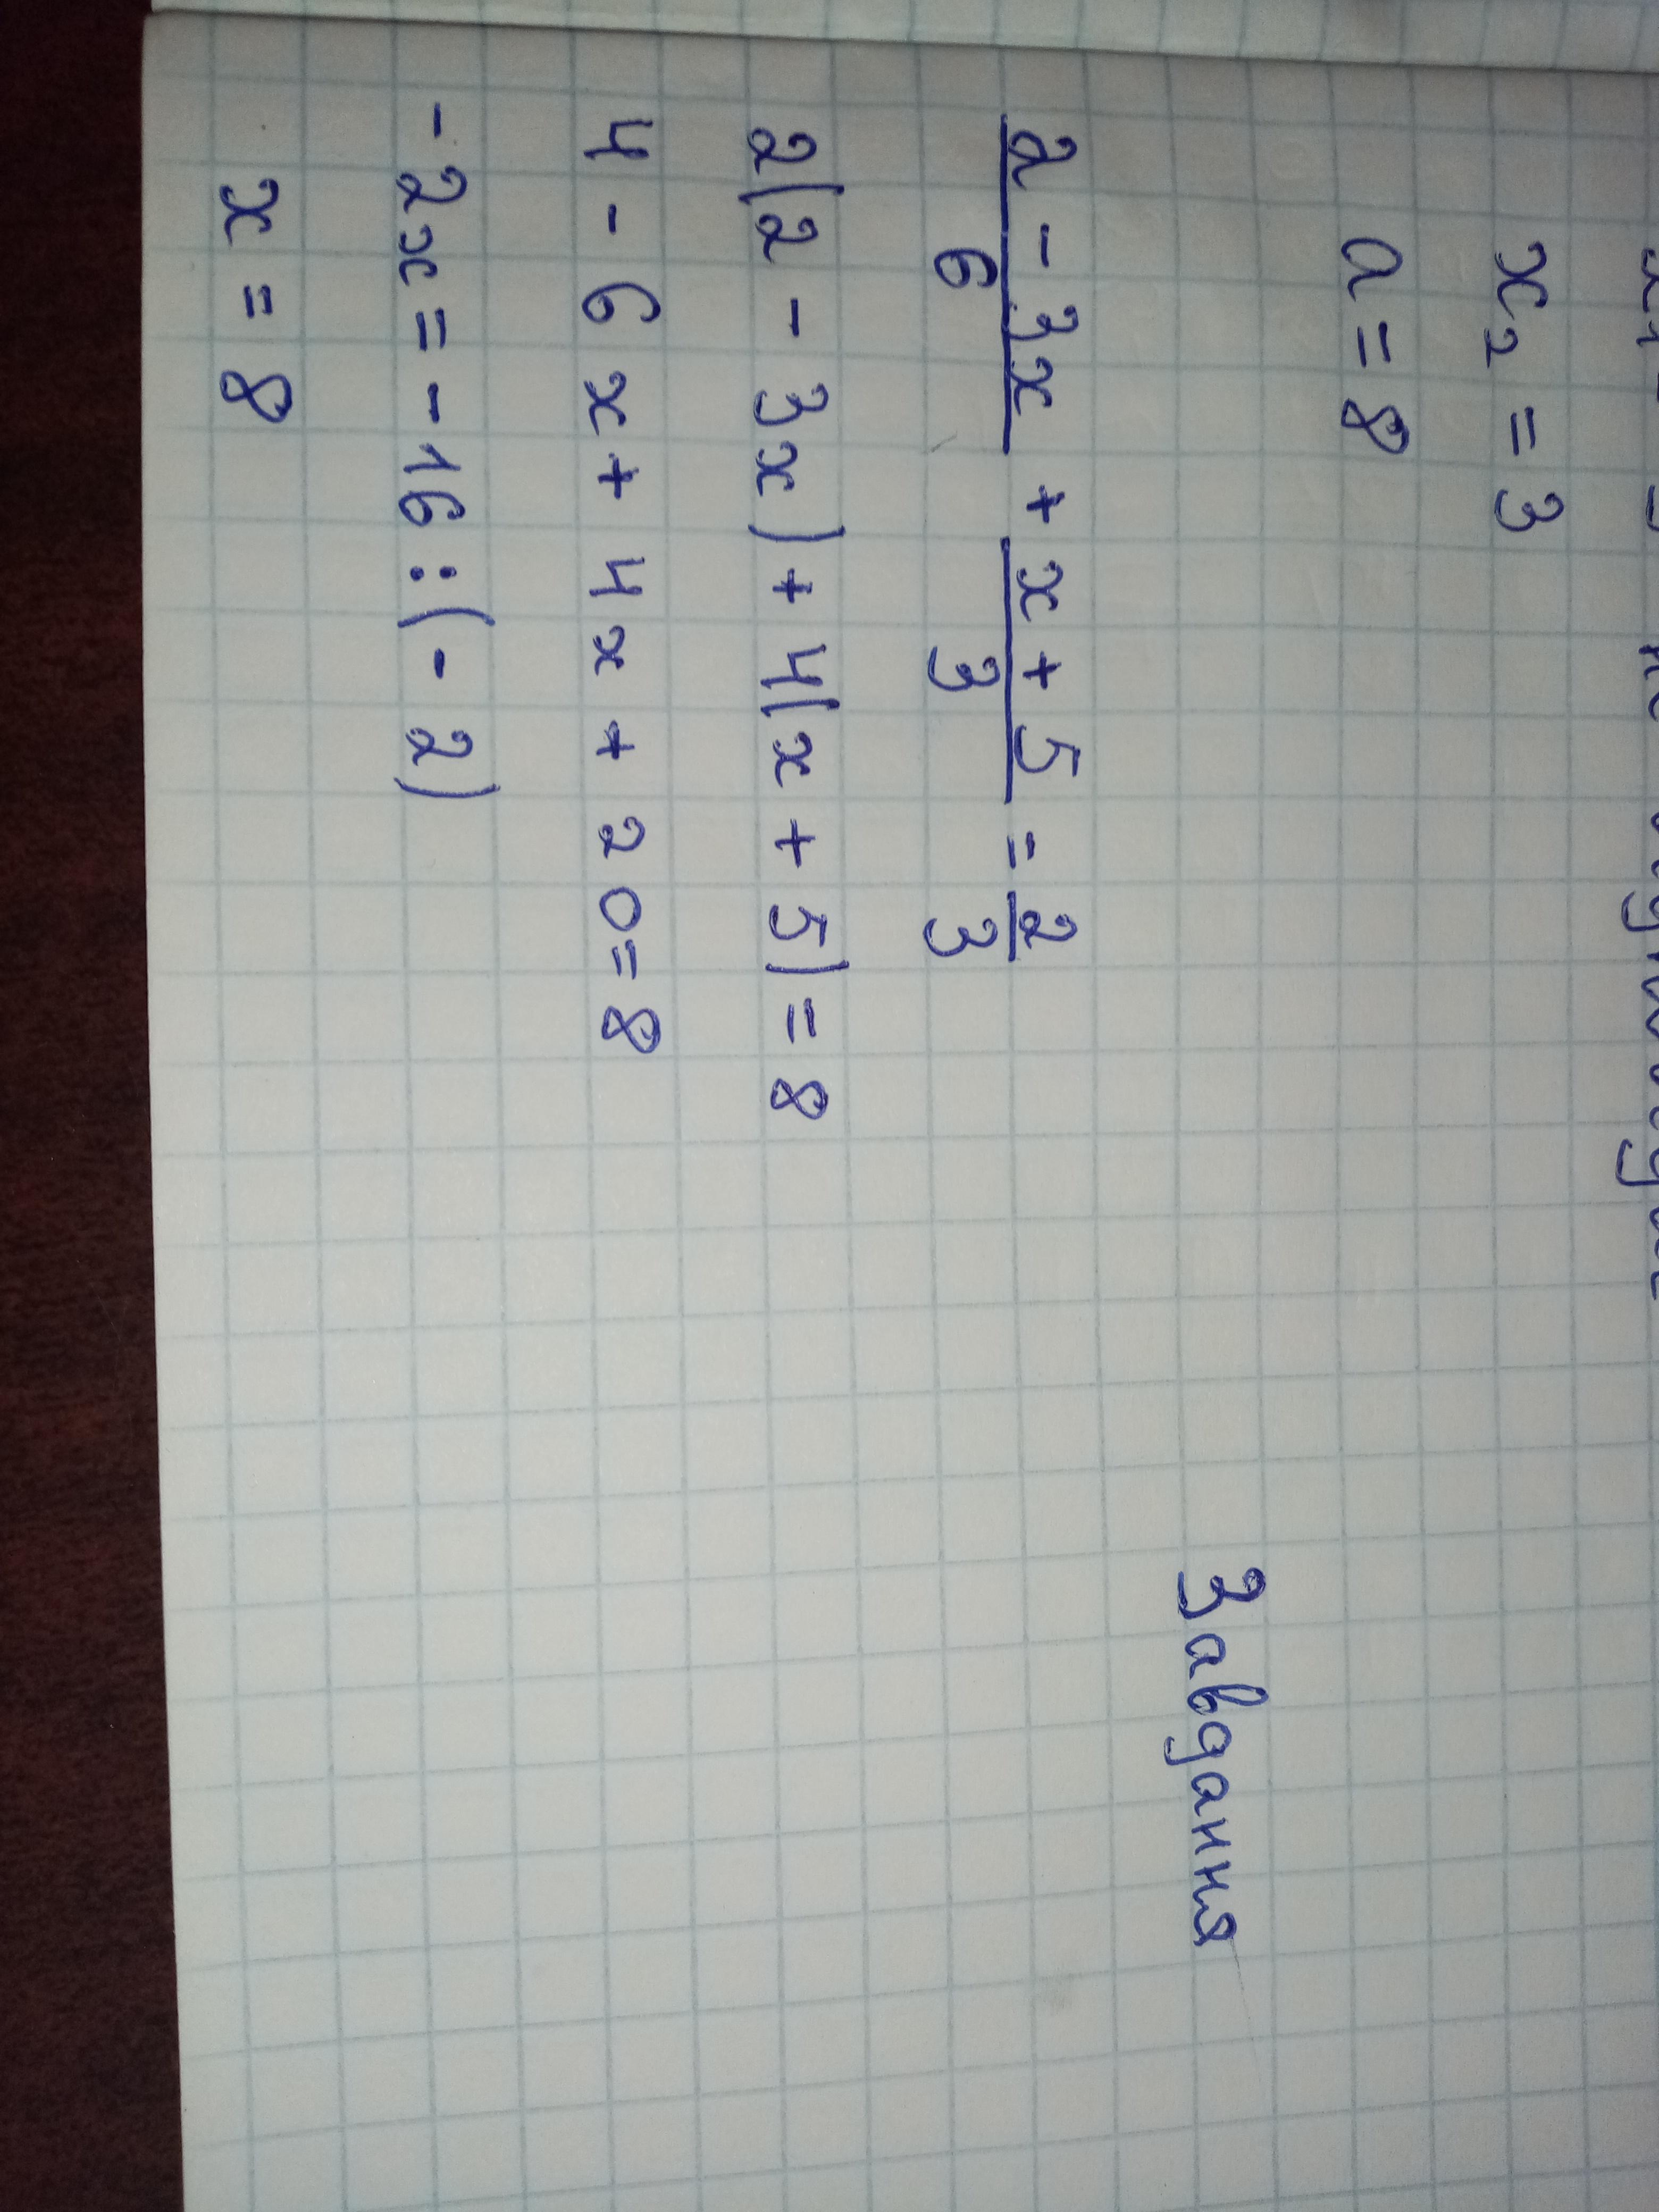 x₂ = 3
a = 8
Завдання
(2 - 3x)/6 + (x + 5)/3 = 2/3
2(2 - 3x) + 4(x + 5) = 8
4 - 6x + 4x + 20 = 8
-2x = -16 : (-2)
x = 8